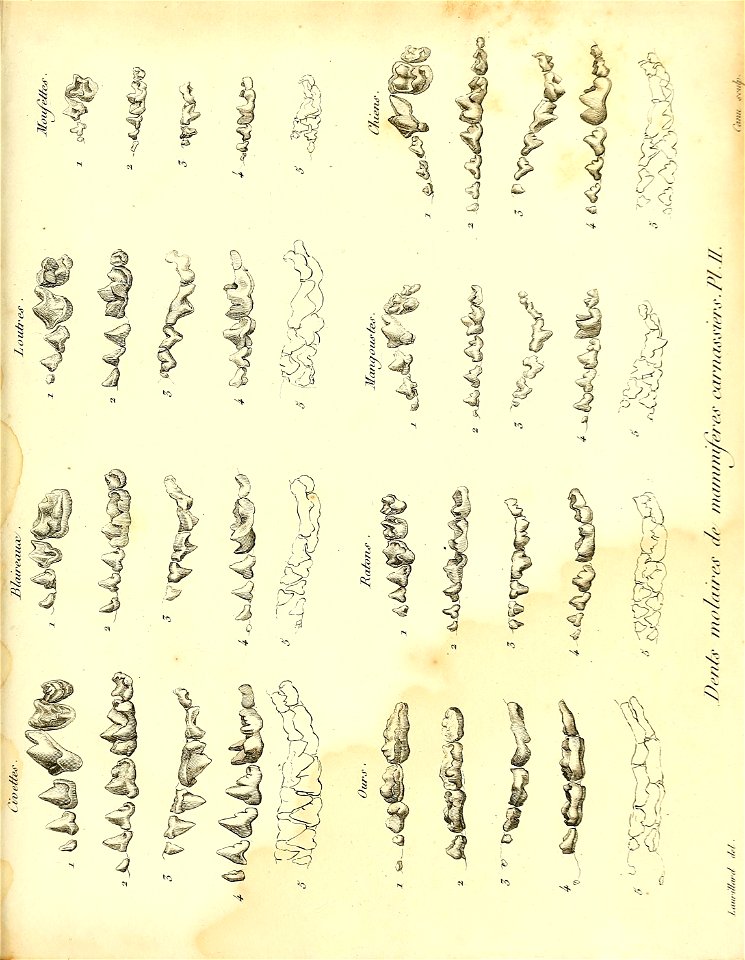 Civettes.
1
2
3
4
5
Blaireaux.
1
2
3
4
5
Loutres.
1
2
3
4
5
Moufettes.
1
2
3
4
5
Ours.
1
2
3
4
5
Ratons.
1
2
3
4
5
Mangoustes.
1
2
3
4
5
Chiens.
1
2
3
4
5
Dents molaires de mammifères carnassiers. Pl. II.
Laurillard del.
Canu sculp.